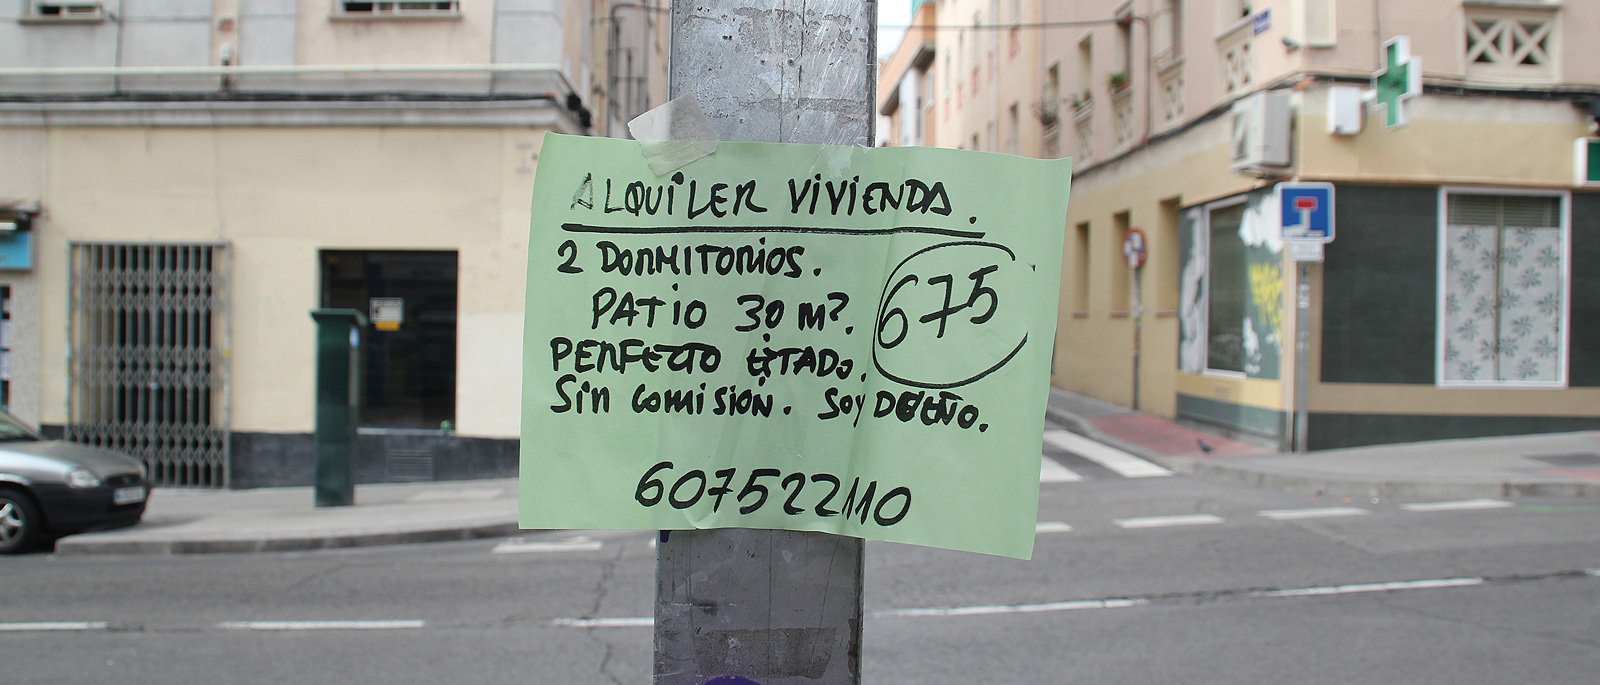 ALQUILER VIVIENDA.
2 DORMITORIOS.
PATIO 30 m².
675
PERFECTO ESTADO.
Sin comisión. Soy DUEÑO.
607522110